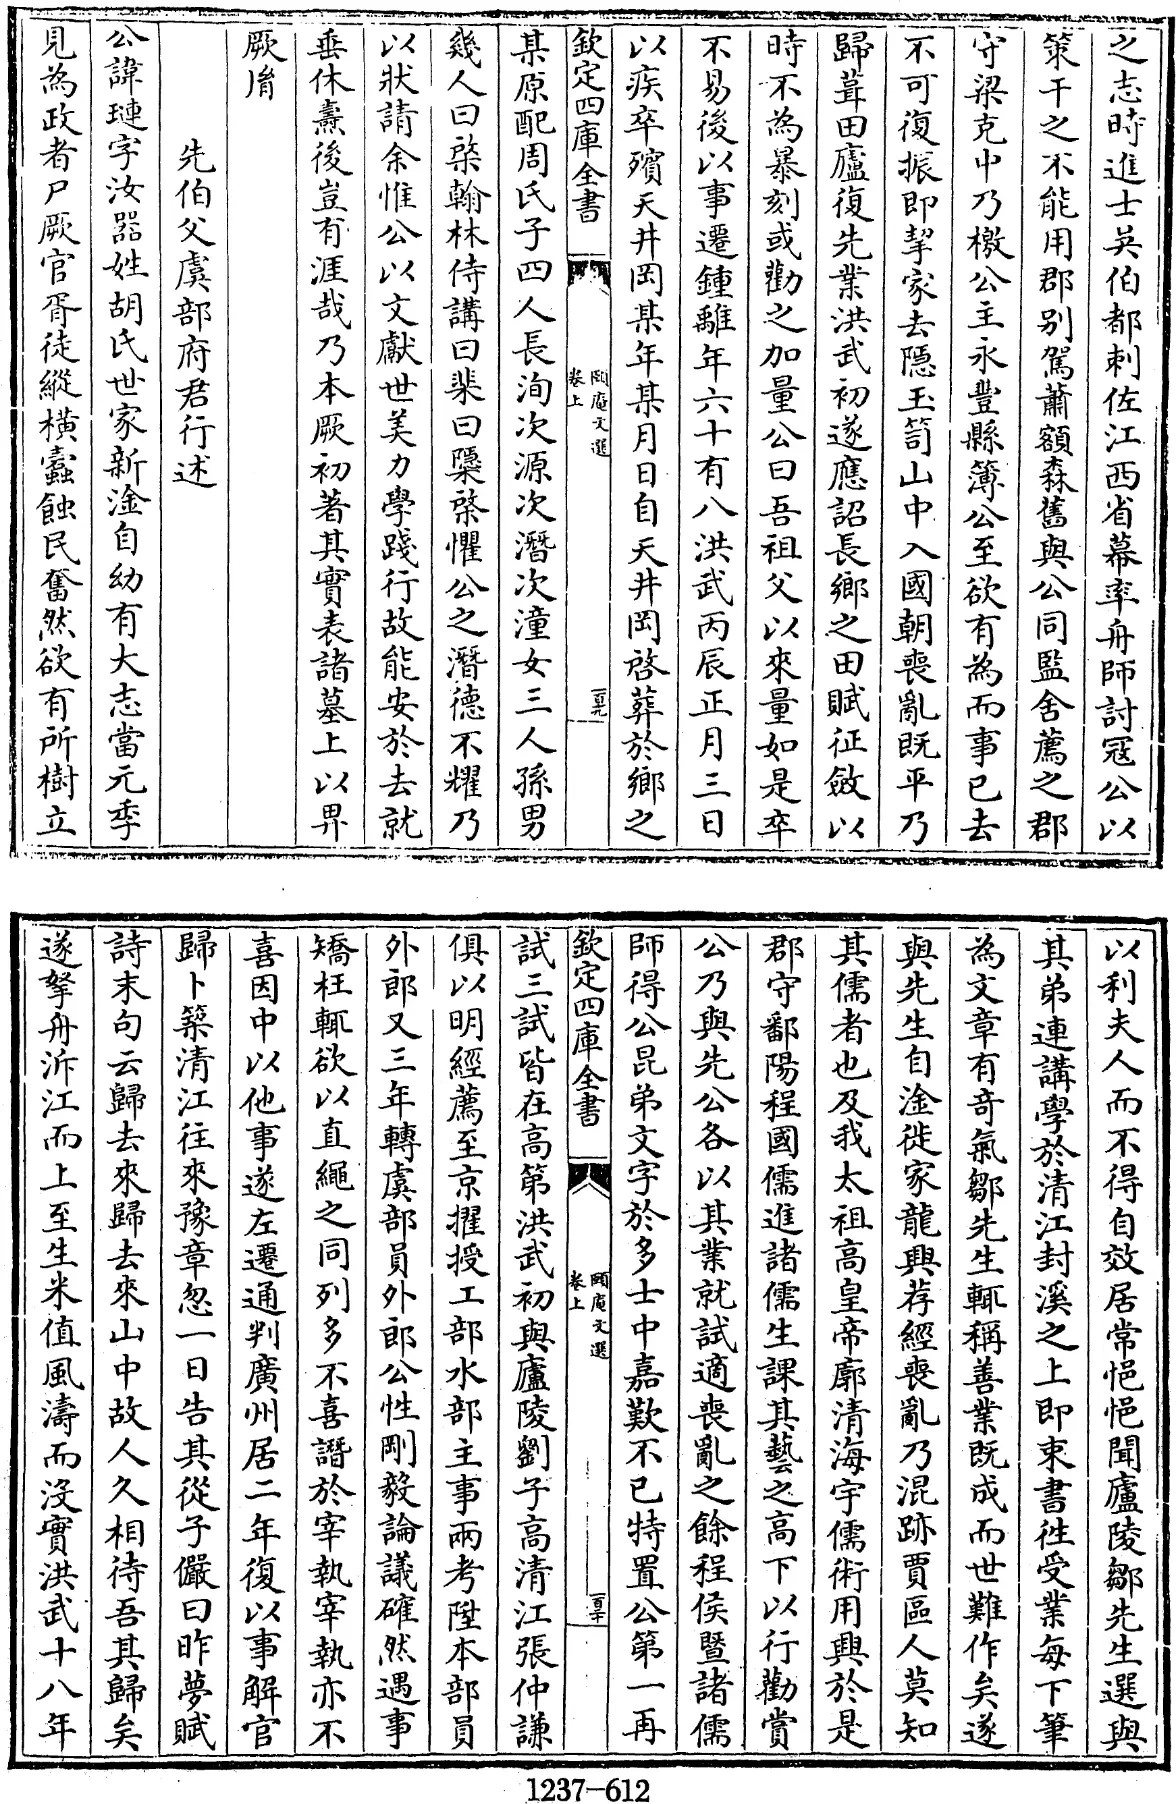 之志時進士英伯都刺佐江西省幕率舟師討冦公以
策干之不能用郡别駕蕭額森舊與公同監舍薦之郡
守梁克中乃檄公主永豐縣簿公至欲有為而事已去
不可復振即挈家去隱玉笥山中入國朝喪亂既平乃
歸葺田廬復先業洪武初遂應詔長鄉之田賦征斂以
時不為暴刻或勸之加量公曰吾祖父以來量如是卒
不易後以事遷鍾離年六十有八洪武丙辰正月三日
以疾卒殯天井岡某年某月日自天井岡啓葬於鄉之
欽定四庫全書
頤庵文選
卷上
百九
某原配周氏子四人長洵次源次潛次潼女三人孫男
幾人曰棨翰林侍講曰棐曰㯤棨懼公之潛德不耀乃
以狀請余惟公以文獻世美力學踐行故能安於去就
垂休燾後豈有涯哉乃本厥初著其實表諸墓上以畀
厥胤
先伯父虞部府君行述
公諱璉字汝器姓胡氏世家新淦自幼有大志當元季
見為政者尸厥官胥徒縱横蠧蝕民奮然欲有所樹立
以利夫人而不得自效居常悒悒聞廬陵鄒先生選與
其弟連講學於清江封溪之上即束書徃受業每下筆
為文章有奇氣鄒先生輒稱善業既成而世難作矣遂
與先生自淦徙家龍興荐經喪亂乃混跡賈區人莫知
其儒者也及我太祖高皇帝廓清海宇儒術用興於是
郡守鄱陽程國儒進諸儒生課其藝之高下以行勸賞
公乃與先公各以其業就試適喪亂之餘程侯暨諸儒
師得公昆弟文字於多士中嘉歎不已特置公第一再
欽定四庫全書
頤庵文選
卷上
百十
試三試皆在高第洪武初與廬陵劉子高清江張仲謙
俱以明經薦至京擢授工部水部主事兩考陞本部員
外郎又三年轉虞部員外郎公性剛毅論議確然遇事
矯枉輒欲以直繩之同列多不喜譖於宰執宰執亦不
喜因中以他事遂左遷通判廣州居二年復以事解官
歸卜築清江往來豫章忽一日告其從子儼曰昨夢賦
詩末句云歸去來歸去來山中故人久相待吾其歸矣
遂拏舟泝江而上至生米值風濤而沒實洪武十八年
1237-612